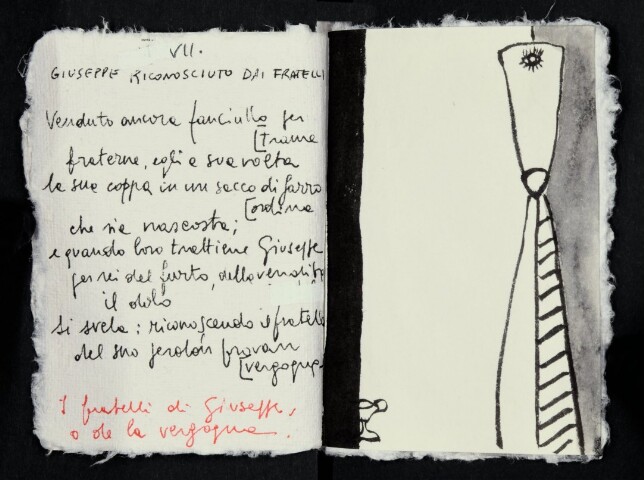 VII.
GIUSEPPE RICONOSCIUTO DAI FRATELLI
Venduto ancora fanciullo per
[trame
fraterne, egli a sua volta
la sua coppa in un sacco di farro
[ordina
che sia nascosta;
e quando loro trattiene Giuseppe
per rei del furto, della vendita
il dolo
si svela: riconoscendo il fratello
del suo perdón provan
[vergogna
I fratelli di Giuseppe,
o de la vergogna.